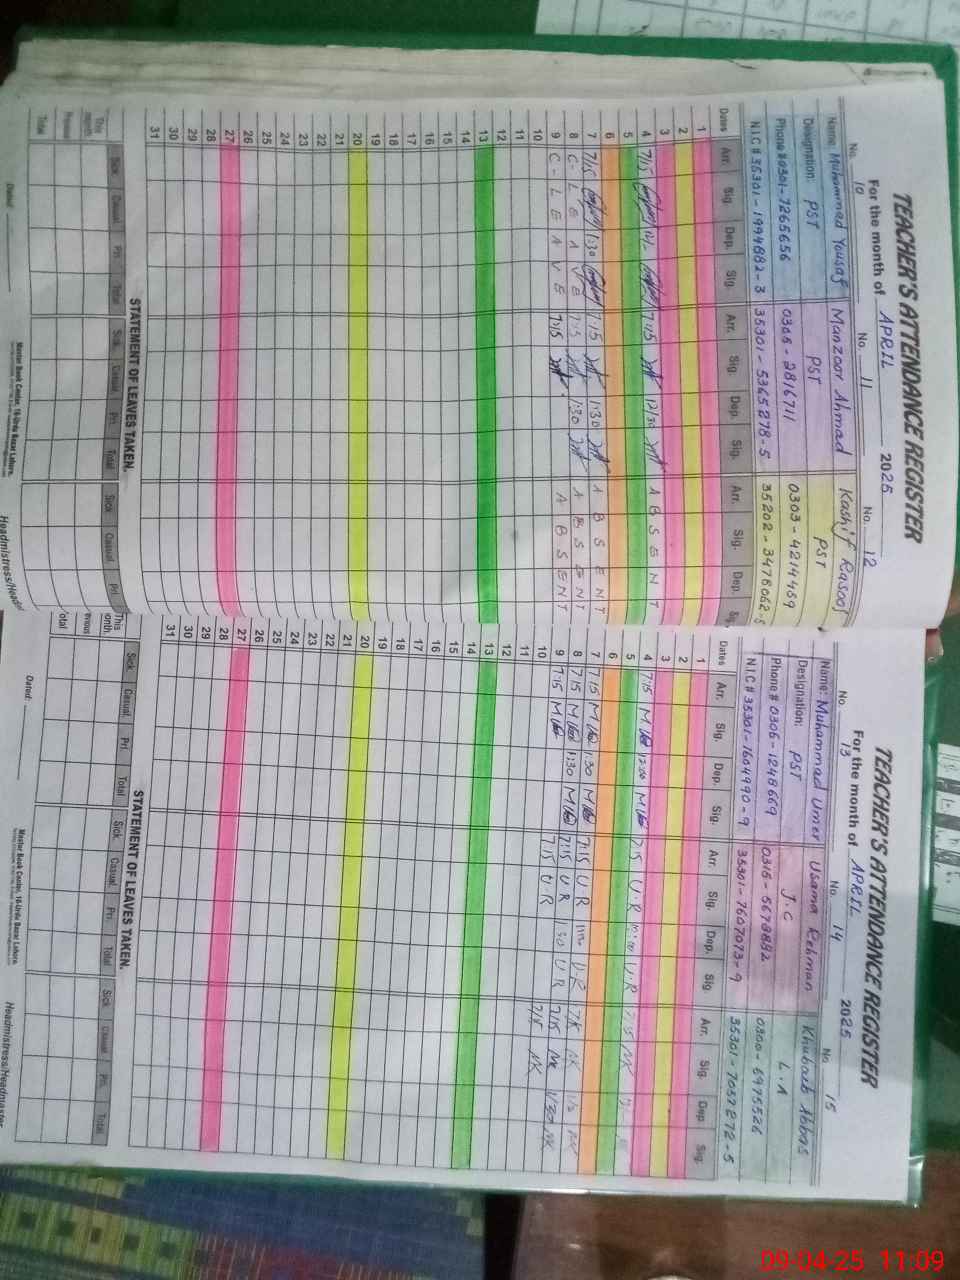 TEACHER'S ATTENDANCE REGISTER
For the month of APRIL 2025
No. 10 No. 11 No. 12
Name: Muhammad Yousaf Manzoor Ahmad Kashif Rasool
Designation: PST PST PST
Phone # 0301-7265656 0306-2816711 0303-4214459
N.I.C # 35301-1994882-3 35301-5365278-5 35202-3478062-5
Dates Arr. Sig. Dep. Sig. Arr. Sig. Dep. Sig. Arr. Sig. Dep. Sig.
1
2
3
4 7/15 12/- 7:15 12/30 A B S E N T
5
6
7 7/15 1:30 7:15 1:30 A B S E N T
8 C - L E A V E 7:15 1:30 A B S E N T
9 C - L E A V E 7:15 A B S E N T
10
11
12
13
14
15
16
17
18
19
20
21
22
23
24
25
26
27
28
29
30
31
STATEMENT OF LEAVES TAKEN.
This month Sick. Casual. Pri. Total Sick. Casual. Pri. Total Sick Casual. Pri.
Previous
Total
Dated:
Headmistress/Head
Master Book Center, 16-Urdu Bazar Lahore.
TEACHER'S ATTENDANCE REGISTER
For the month of APRIL 2025
No. 13 No. 14 No. 15
Name: Muhammad Umer Usama Rehman Khubaib Abbas
Designation: PST J.C L.A
Phone # 0306-1248669 0315-5673882 0300-6975526
N.I.C # 35301-1604990-9 35301-7607073-9 35301-7057272-5
Dates Arr. Sig. Dep. Sig. Arr. Sig. Dep. Sig Arr. Sig. Dep Sig.
1
2
3
4 7:15 12:00 7:15 U.R U.R 7/15 NK
5
6
7 7:15 1:30 7:15 U-R U-R NK
8 7:15 1:30 7:15 U R 1:30 U R 7/15 NK 1/30 NK
9 7:15 7:15 U-R 7/15 NK
10
11
12
13
14
15
16
17
18
19
20
21
22
23
24
25
26
27
28
29
30
31
STATEMENT OF LEAVES TAKEN.
This month Sick. Casual. Pri. Total Sick. Casual. Pri. Total Sick. Casual Pri. Total
Previous
Total
Dated:
Headmistress/Headmaster
Master Book Center, 16-Urdu Bazar Lahore.
09-04-25 11:09